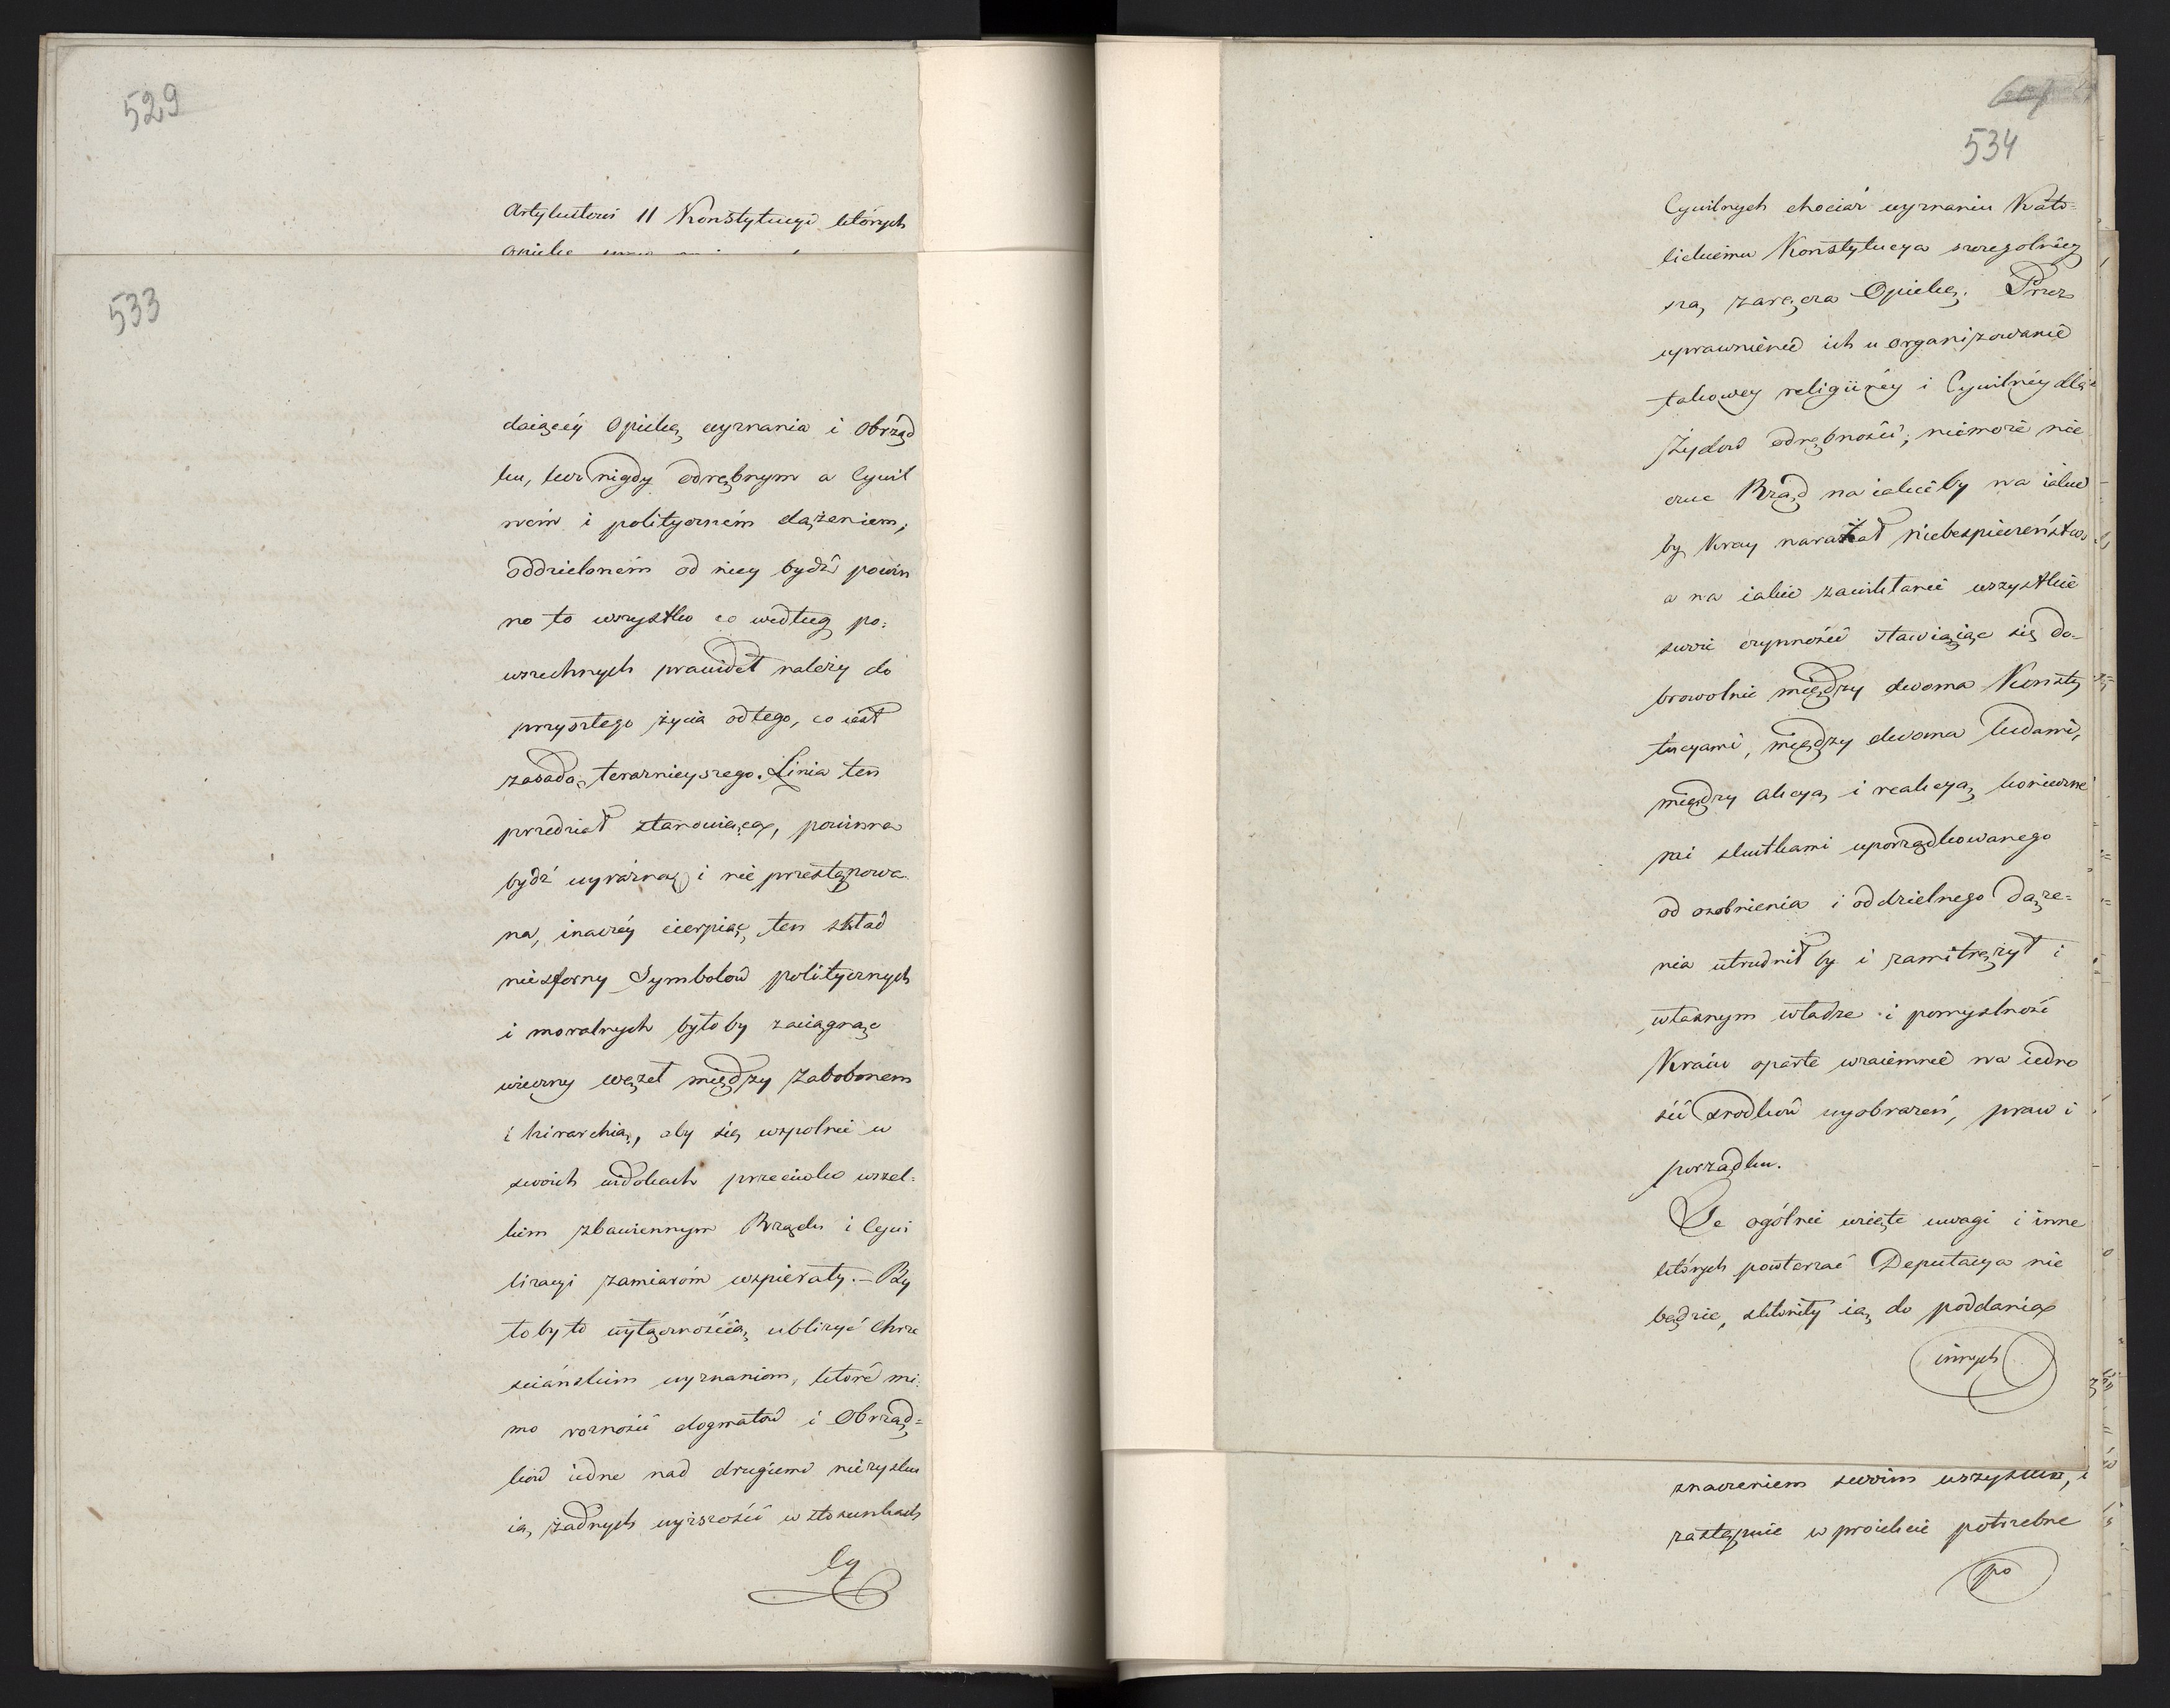 529
Artykułowi 11 Konstytucyi których
opieką
533
daiącéy Opiekę wyznania i Obrząd
ku, lecz nigdy odrębnym a Cywil
ném i polityczném dążeniem,
oddzieloném od niey bydź powin
no to wszystko co według po-
wszechnych prawideł należy do
przyszłego życia od tego, co iest
zasadą teraznieyszego. Linia ten
przedział stanowiąca, powinna
bydź wyraźną i nie przestępowa
na, inaczéy cierpiąc ten skład
niesforny Symbolow politycznych
i moralnych byłoby zaciągnąc
wieczny węzeł między Zabobonem
i hirarchią, aby się wspolnie w
swoich widokach przeciwko wszel-
kim zbawiennym Rządu i Cywi
lizacyi zamiaróm wspierały. – By
ło by to wyłącznością ubliżyć Chrze
sciańskim wyznaniom, które mi-
mo rożności dogmatow i Obrząd=
kow iedne nad drugiemi niezysku
ią, żadnych wyższości w stosunkach
Cy
534
Cywilnych chociaż wyznaniu Kato=
lickiemu Konstytucya szczegolniey
szą zaręcza Opiekę. Przez
uprawnienie ich u organizowanie
takowey religiinéy i Cywilnéy dla
Żydow odrębności, niemoże nie
czuc Rząd na iakieby na iakie
by Kray narażał niebespieczeństwo
a na iakie zawikłanie wszystkie
swoie czynności stawiąiąc się do-
browolnie między dwoma Konsty
tucyami, między dwoma ludami,
między akcyą i reakcyą konieczne
mi skutkami uporządkowanego
od osobnienia i oddzielnego dąże=
nia utrudnił by i zamitrężył i
własnym władze i pomyslność
Kraiu oparte wzaiemnie na iedno
ści srodkow wyobrażeń, praw i
porządku.
Te ogólnie wzięte uwagi i inne
których powtarzać Deputacya nie
będzie, skłoniły ią do poddania
innych
znaczeniem swoim wszystkie, i
zastąpnie w proiekcie potrzebne
po